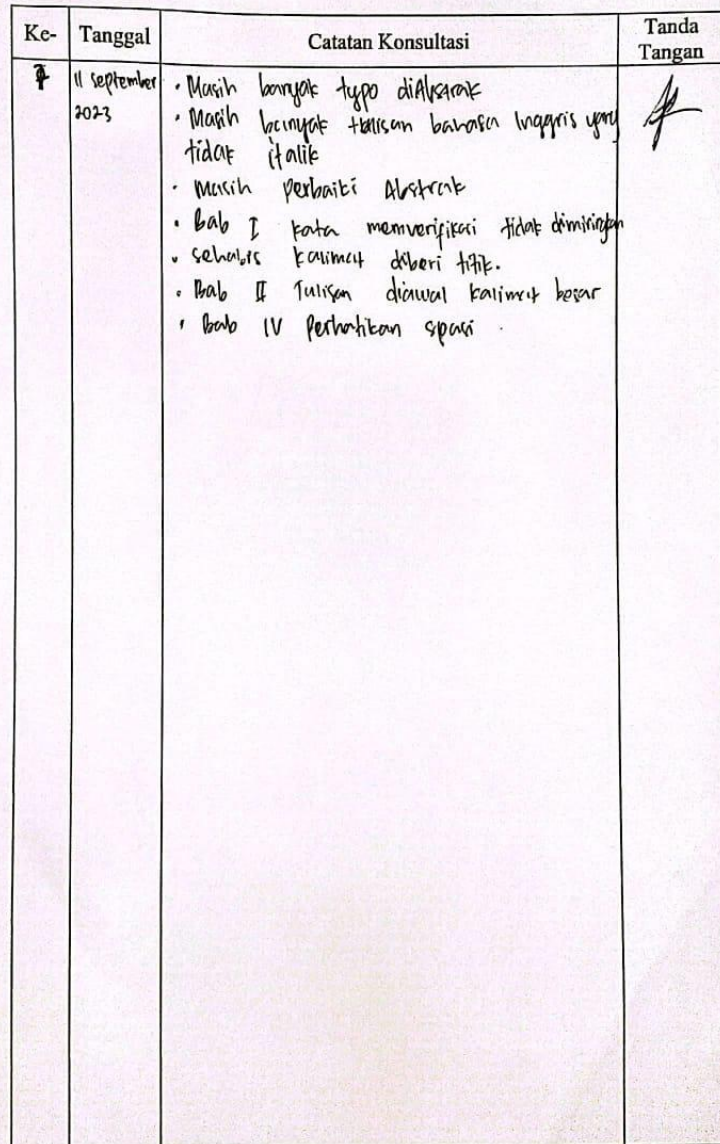 Ke- Tanggal Catatan Konsultasi Tanda Tangan
11 september 2023
· Masih banyak typo diAbsarak
· Masih banyak tulisan bahasa Inggris yang
tidak italik
· masih perbaiki Abstrak
· Bab I kata memverifikasi tidak dimiringkan
· sehabis kalimat diberi titik.
· Bab II Tulisan diawal kalimat besar
· Bab IV Perhatikan spasi